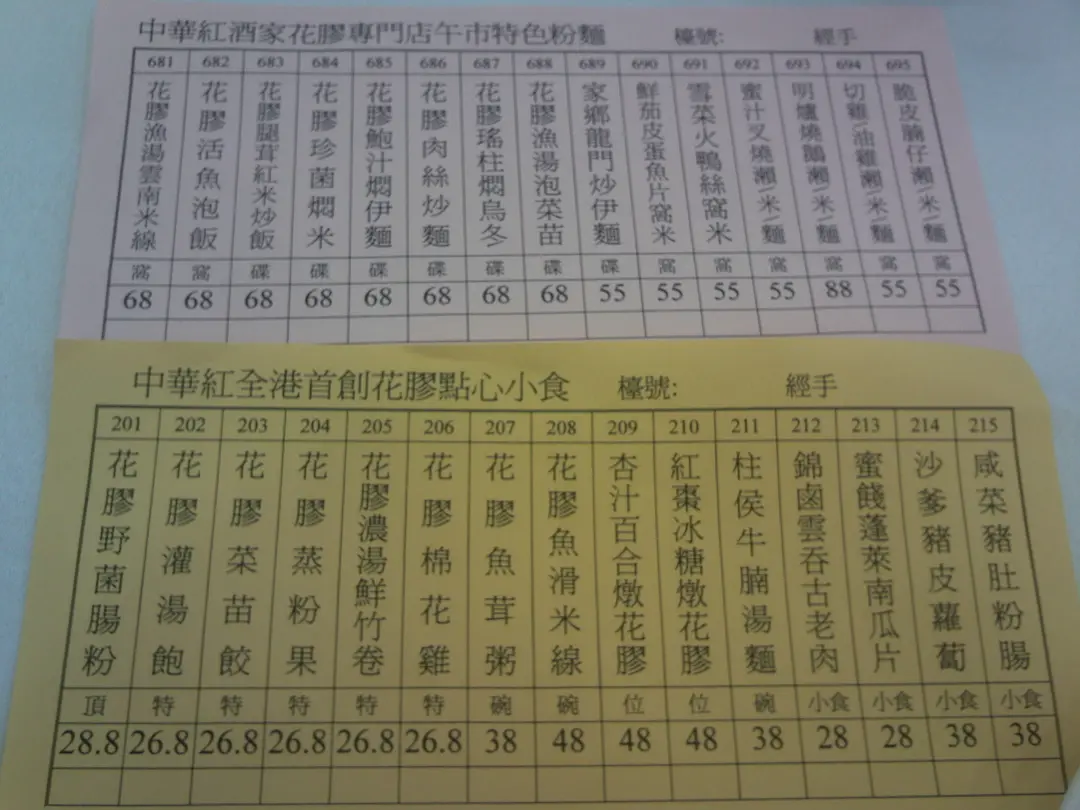 中華紅酒家花膠專門店午市特色粉麵 檯號: 經手
681 682 683 684 685 686 687 688 689 690 691 692 693 694 695
花膠漁湯雲南米線
花膠活魚泡飯
花膠腿茸紅米炒飯
花膠珍菌燜米
花膠鮑汁燜伊麵
花膠肉絲炒麵
花膠瑤柱燜烏冬
花膠漁湯泡菜苗
家鄉龍門炒伊麵
鮮茄皮蛋魚片窩米
雪菜火鴨絲窩米
蜜汁叉燒瀨/米/麵
明爐燒鵝瀨/米/麵
切雞/油雞瀨/米/麵
脆皮腩仔瀨/米/麵
窩 窩 碟 碟 碟 碟 碟 碟 碟 窩 窩 窩 窩 窩 窩
68 68 68 68 68 68 68 68 55 55 55 55 88 55 55
中華紅全港首創花膠點心小食 檯號: 經手
201 202 203 204 205 206 207 208 209 210 211 212 213 214 215
花膠野菌腸粉
花膠灌湯飽
花膠菜苗餃
花膠蒸粉果
花膠濃湯鮮竹卷
花膠棉花雞
花膠魚茸粥
花膠魚滑米線
杏汁百合燉花膠
紅棗冰糖燉花膠
柱侯牛腩湯麵
錦鹵雲吞古老肉
蜜餞蓬萊南瓜片
沙爹豬皮蘿蔔
咸菜豬肚粉腸
頂 特 特 特 特 特 碗 碗 位 位 碗 小食 小食 小食 小食
28.8 26.8 26.8 26.8 26.8 26.8 38 48 48 48 38 28 28 38 38